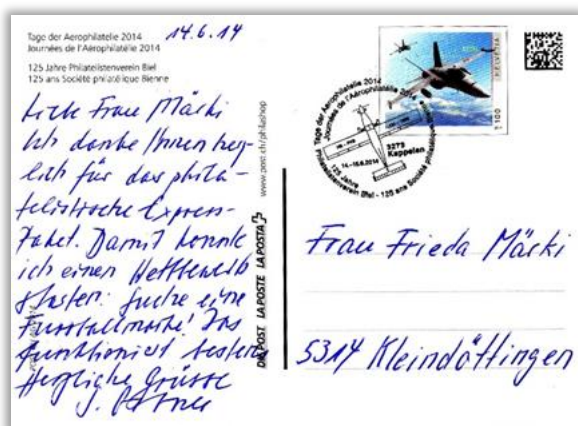 Tage der Aérophilatelie 2014
Journées de l'Aérophilatélie 2014
125 Jahre Philatelistenverein Biel
125 ans Société philatélique Bienne
14.6.14
Liebe Frau Märki
Ich danke Ihnen herz-
lich für das phila-
telistische Express-
Paket. Damit konnte
ich einen Wettbewerb
starten: suche eine
Fussballmarke! Das
funktioniert bestens
Herzliche Grüsse
www.post.ch/philashop
DIE POST LA POSTE LA POSTA
HELVETIA
100
Tage der Aérophilatelie 2014
Journées de l'Aérophilatélie 2014
3273
Kappelen
14.-15.6.2014
125 Jahre
Philatelistenverein Biel - 125 ans Société philatélique
Frau Frieda Märki
5314 Kleindöttingen